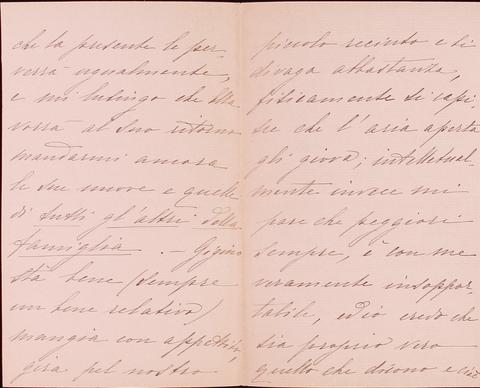 che la presente le per-
verrà ugualmente,
e mi lusingo che Ella
vorrà al Suo ritorno
mandarmi ancora
le sue nuove e quelle
di tutti gl'altri della
famiglia. - Gigino
sta bene (sempre
un bene relativo)
mangia con appetito
gira pel nostro
piccolo recinto e si
divaga abbastanza,
fisicamente si capi-
sce che l'aria aperta
gli giova; intellettual-
mente invece mi
pare che peggiori
sempre, è con me
veramente insoppor-
tabile, ed io credo che
sia proprio vero
quello che dicono e cioè